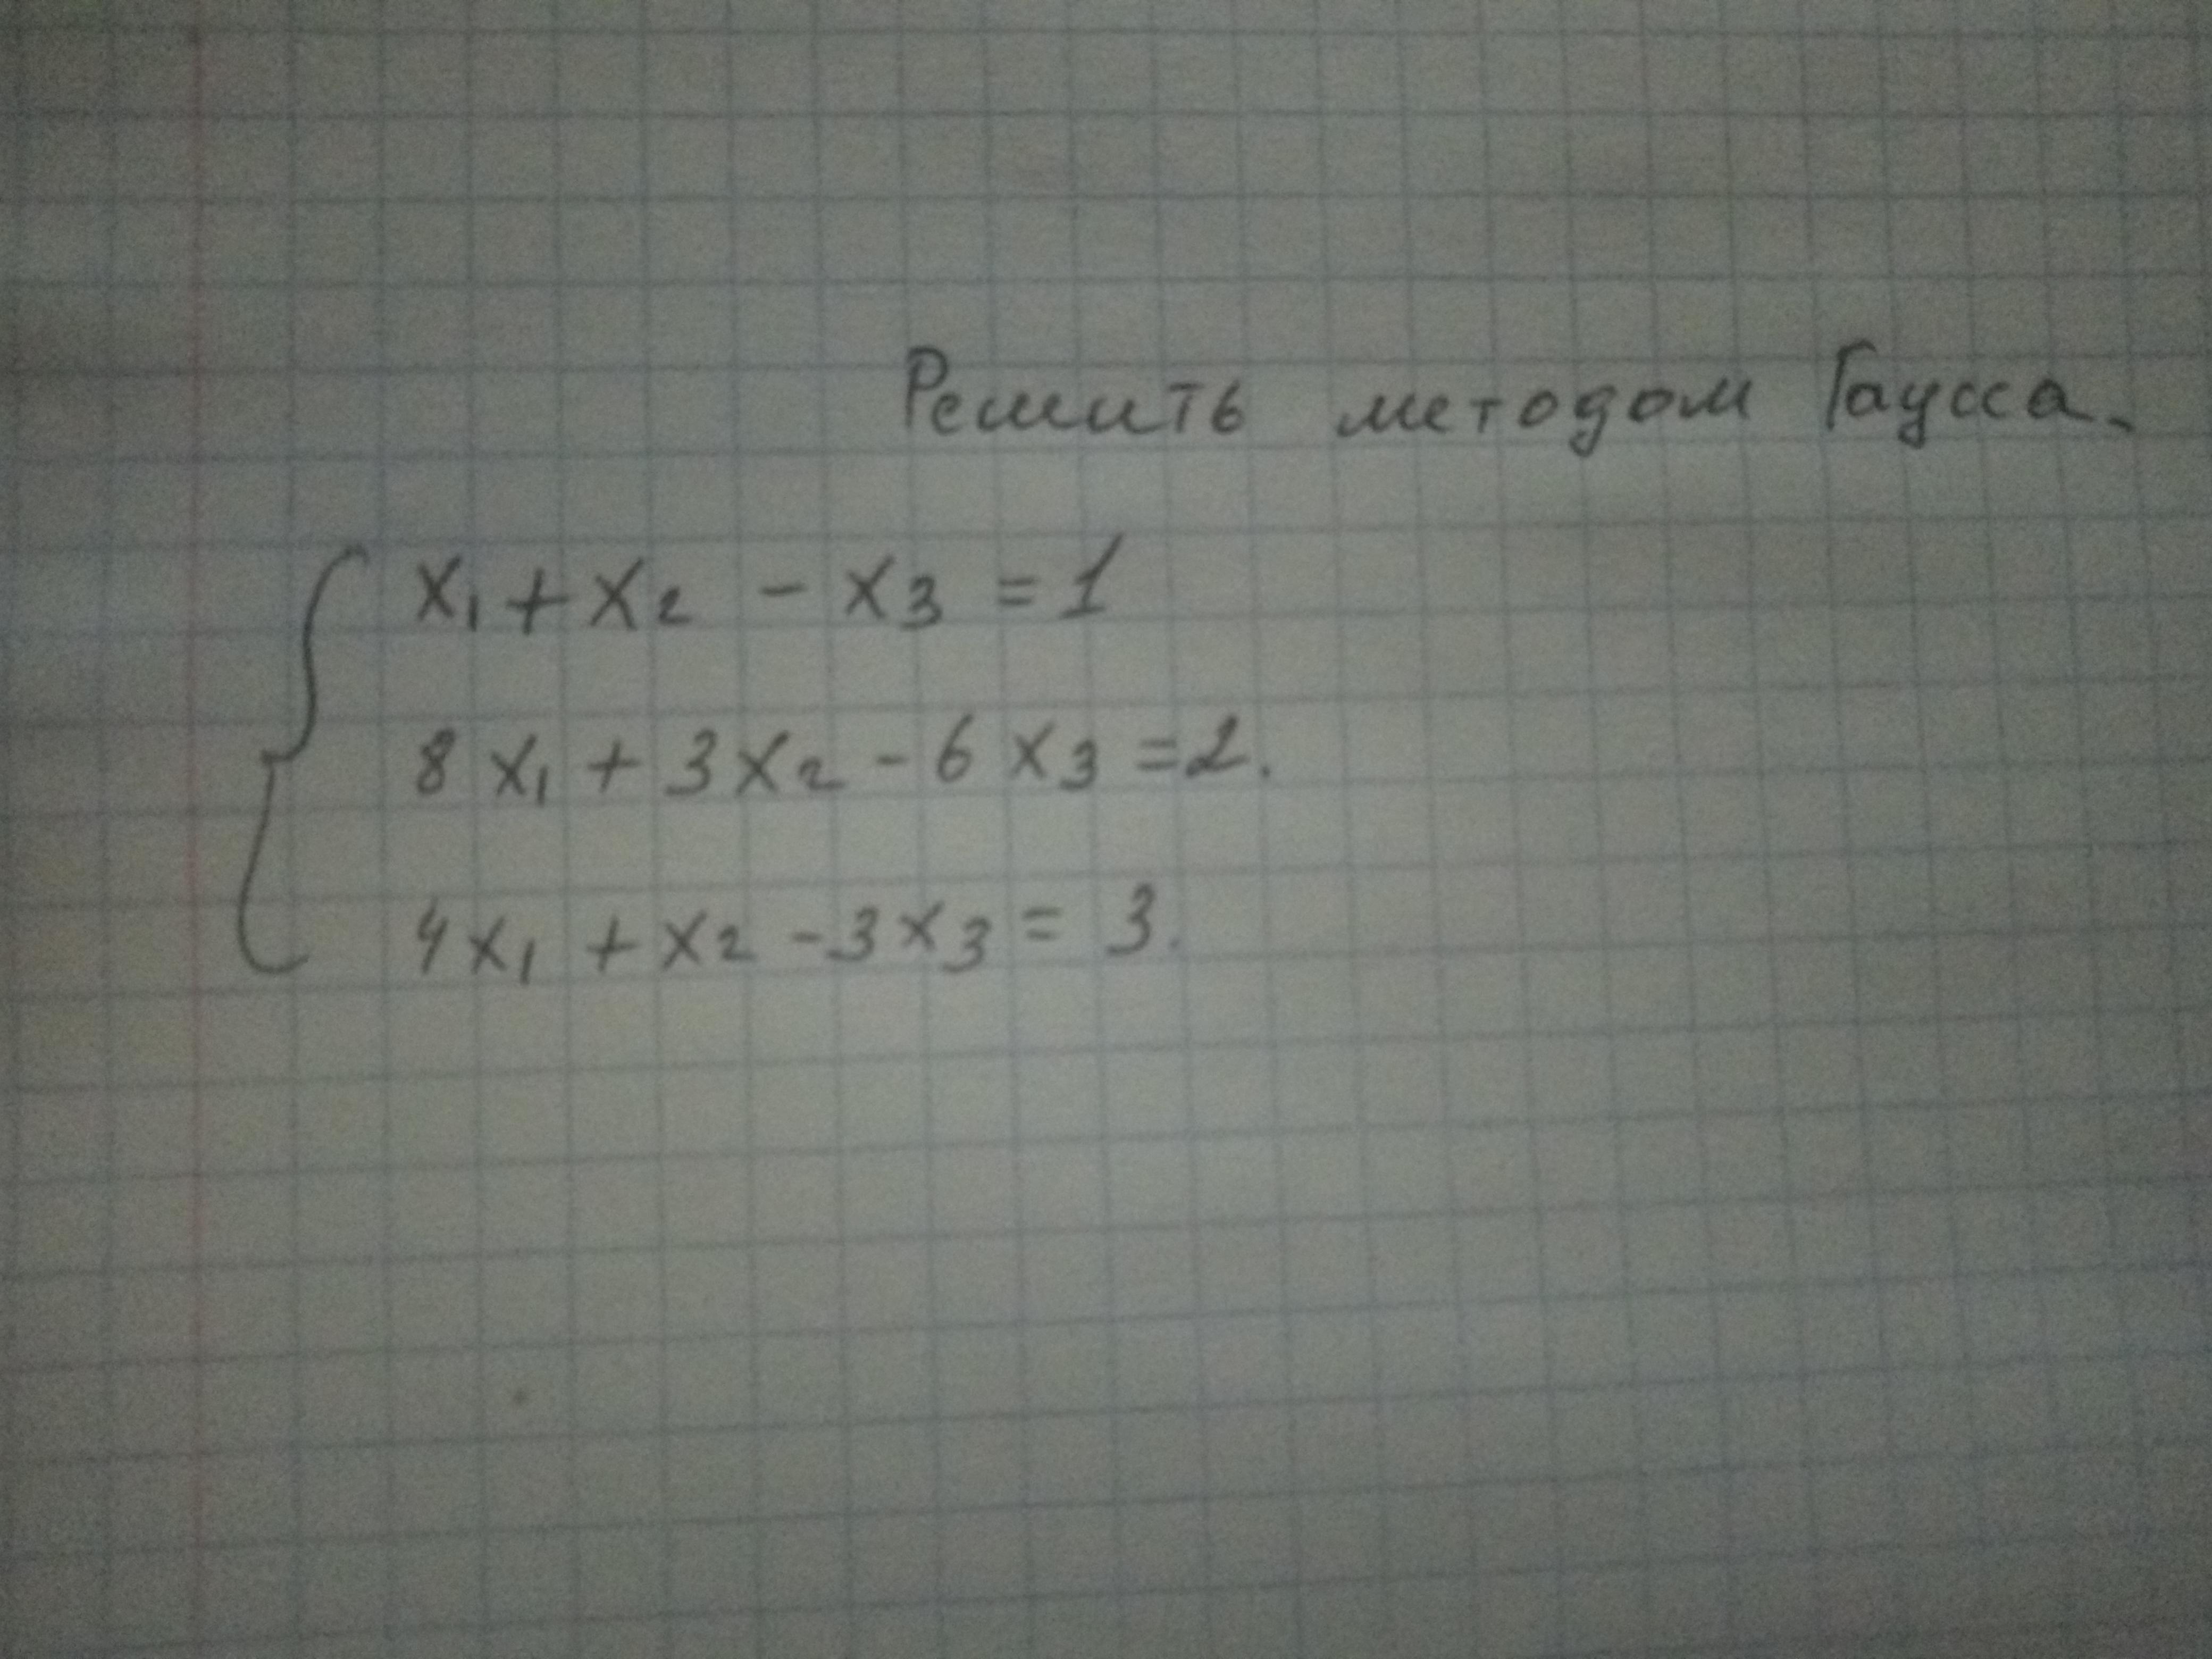 Решить методом Гаусса.
x₁ + x₂ - x₃ = 1
8x₁ + 3x₂ - 6x₃ = 2.
4x₁ + x₂ - 3x₃ = 3.